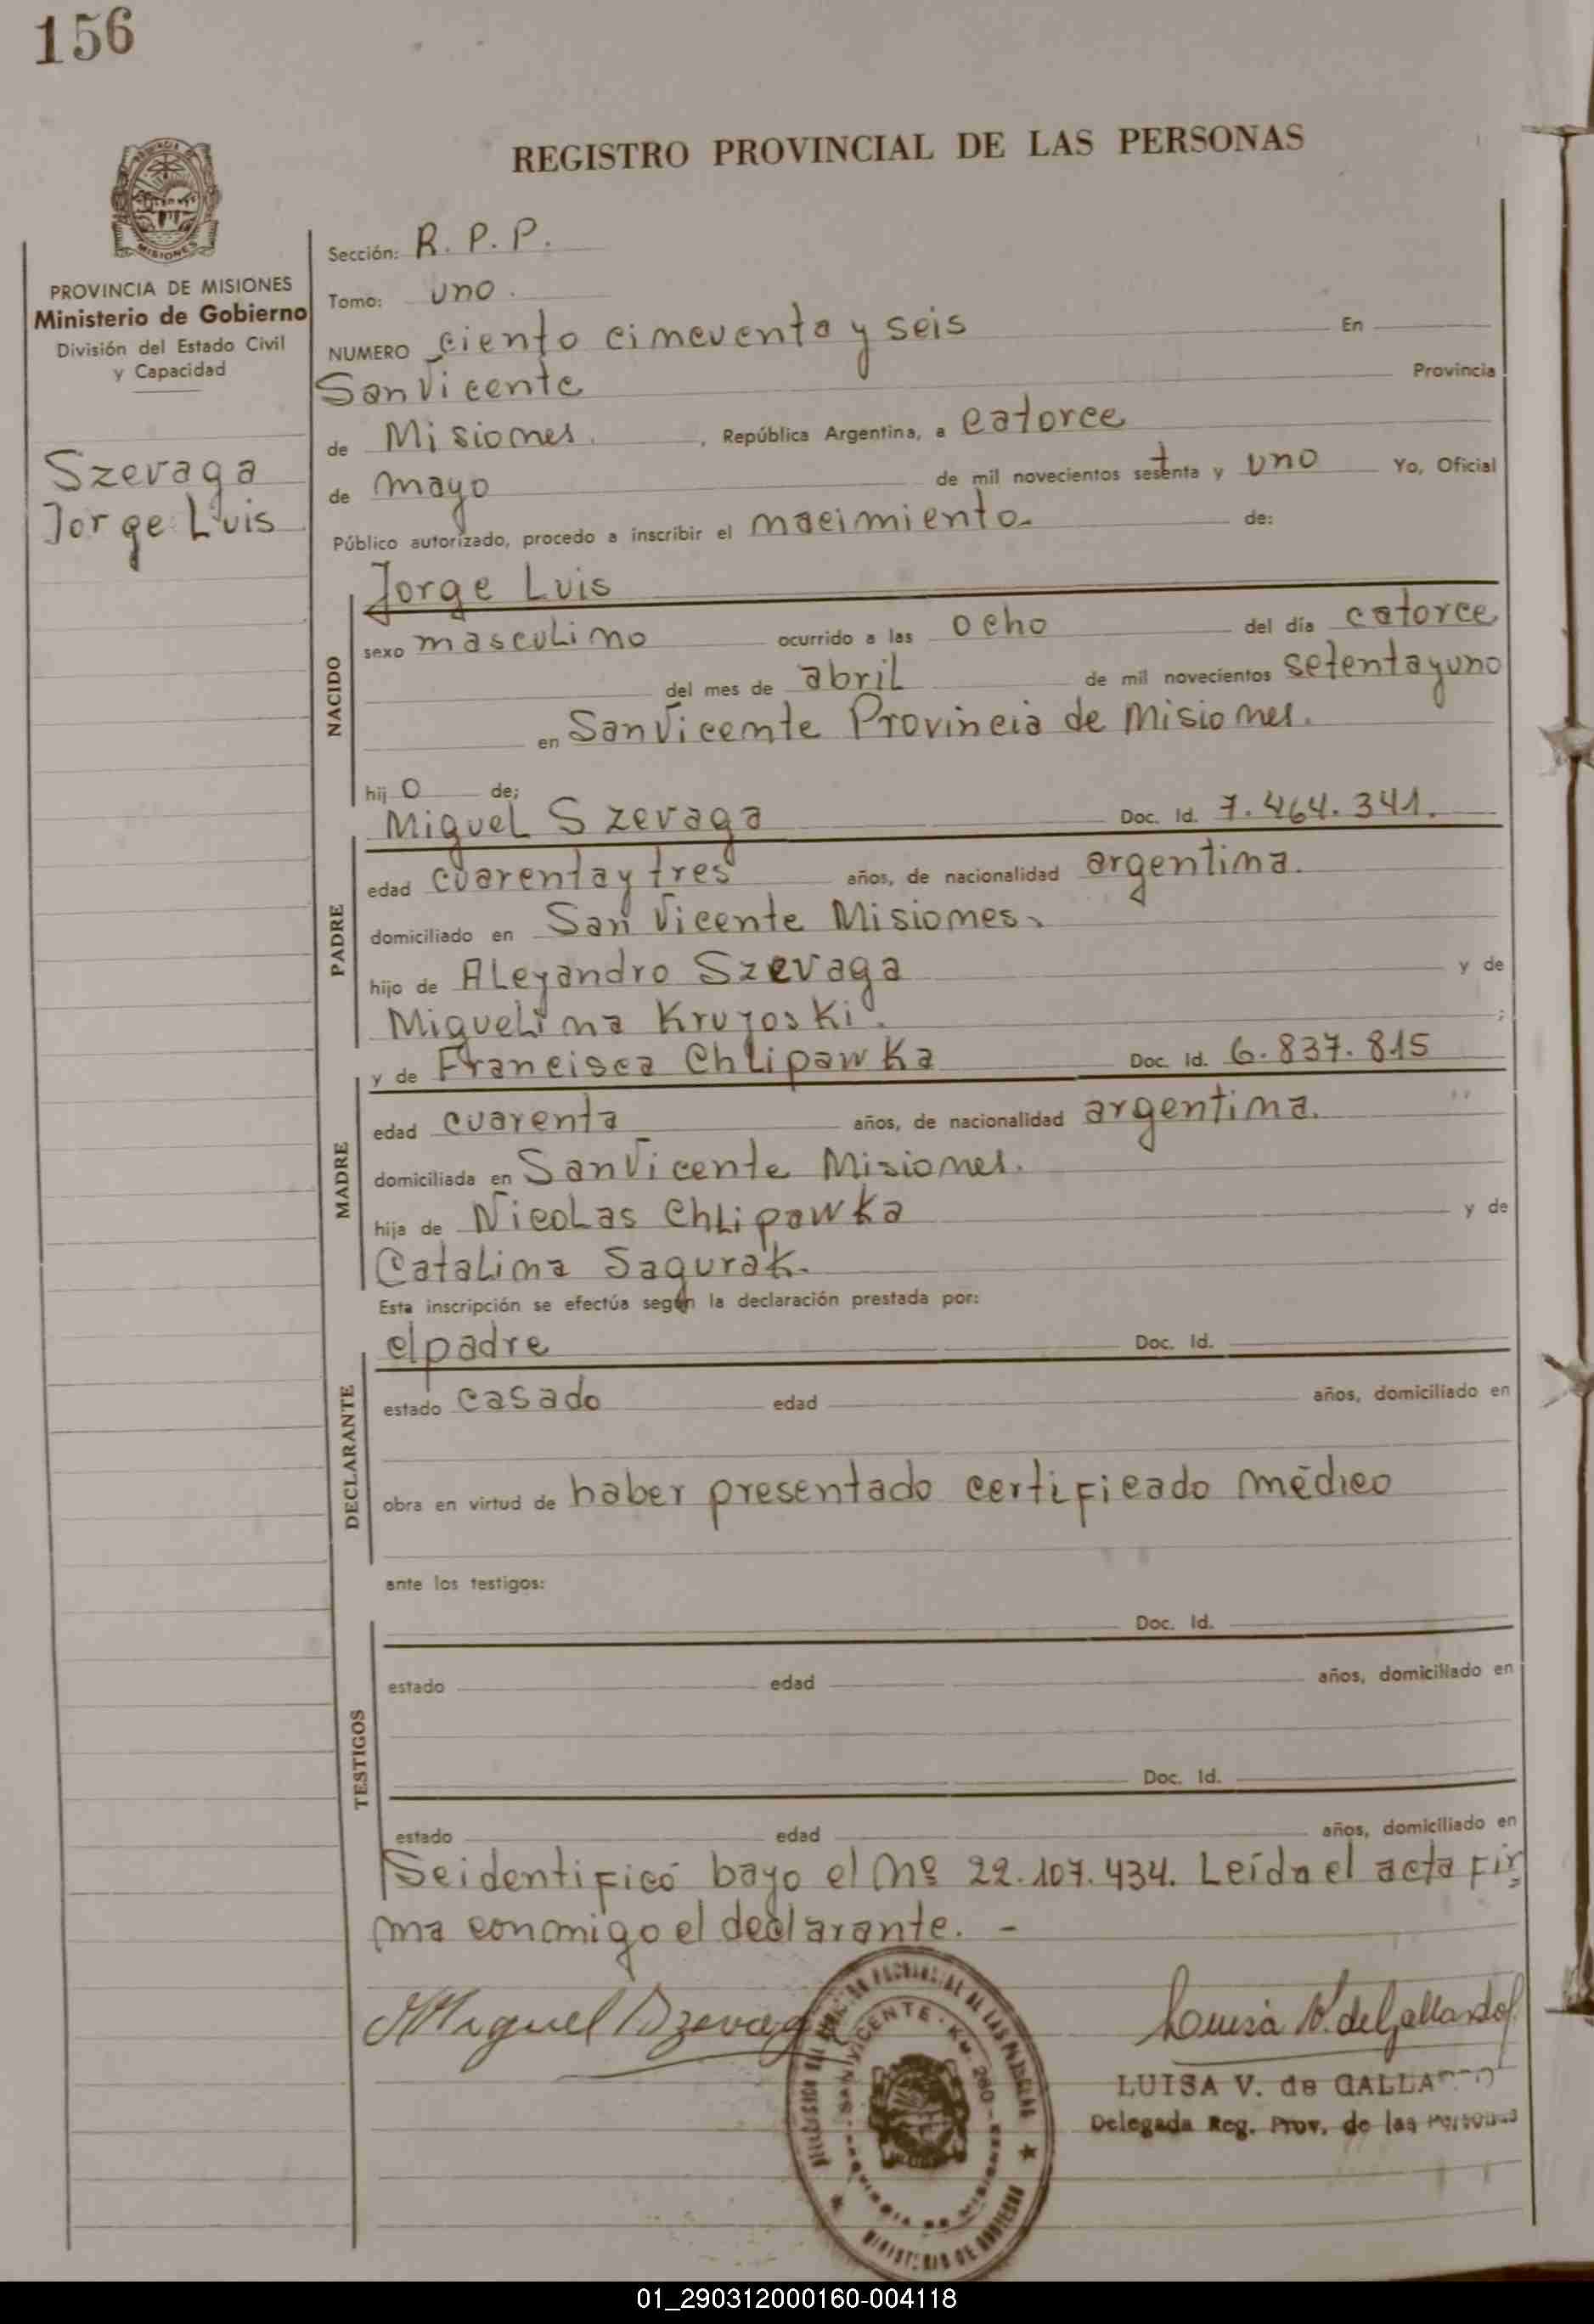 156
REGISTRO PROVINCIAL DE LAS PERSONAS
MISIONES
PROVINCIA DE MISIONES
Ministerio de Gobierno
División del Estado Civil
y Capacidad
Szevaga
Jorge Luis
Sección: R. P. P.
Tomo: uno.
NUMERO ciento cincuenta y seis En
San Vicente Provincia
de Misiones. , República Argentina, a catorce
de mayo de mil novecientos setenta y uno Yo, Oficial
Público autorizado, procedo a inscribir el nacimiento. de:
NACIDO
Jorge Luis
sexo masculino ocurrido a las ocho del día catorce
del mes de abril de mil novecientos setenta y uno
en San Vicente Provincia de Misiones.
hij o de;
PADRE
Miguel Szevaga Doc. Id. 7.464.341.
edad cuarenta y tres años, de nacionalidad argentina.
domiciliado en San Vicente Misiones.
hijo de Aleyandro Szevaga y de
Miguelina Kruyoski. ;
MADRE
y de Francisca Chlipawka Doc. Id. 6.837.815
edad cuarenta años, de nacionalidad argentina.
domiciliada en San Vicente Misiones.
hija de Nicolas Chlipawka y de
Catalina Sagurak.
Esta inscripción se efectúa según la declaración prestada por:
DECLARANTE
el padre Doc. Id.
estado casado edad años, domiciliado en
obra en virtud de haber presentado certificado médico
ante los testigos:
TESTIGOS
Doc. Id.
estado edad años, domiciliado en
Doc. Id.
estado edad años, domiciliado en
Se identificó bayo el Nº 22.107.434. Leída el acta fir=
ma conmigo el declarante. -
Miguel Szevaga
Luisa V. de Gallardo
LUISA V. de GALLARDO
Delegada Reg. Prov. de las Personas
SAN VICENTE - KM. 280 - PROVINCIA DE MISIONES
MINISTERIO DE GOBIERNO
01_290312000160-004118